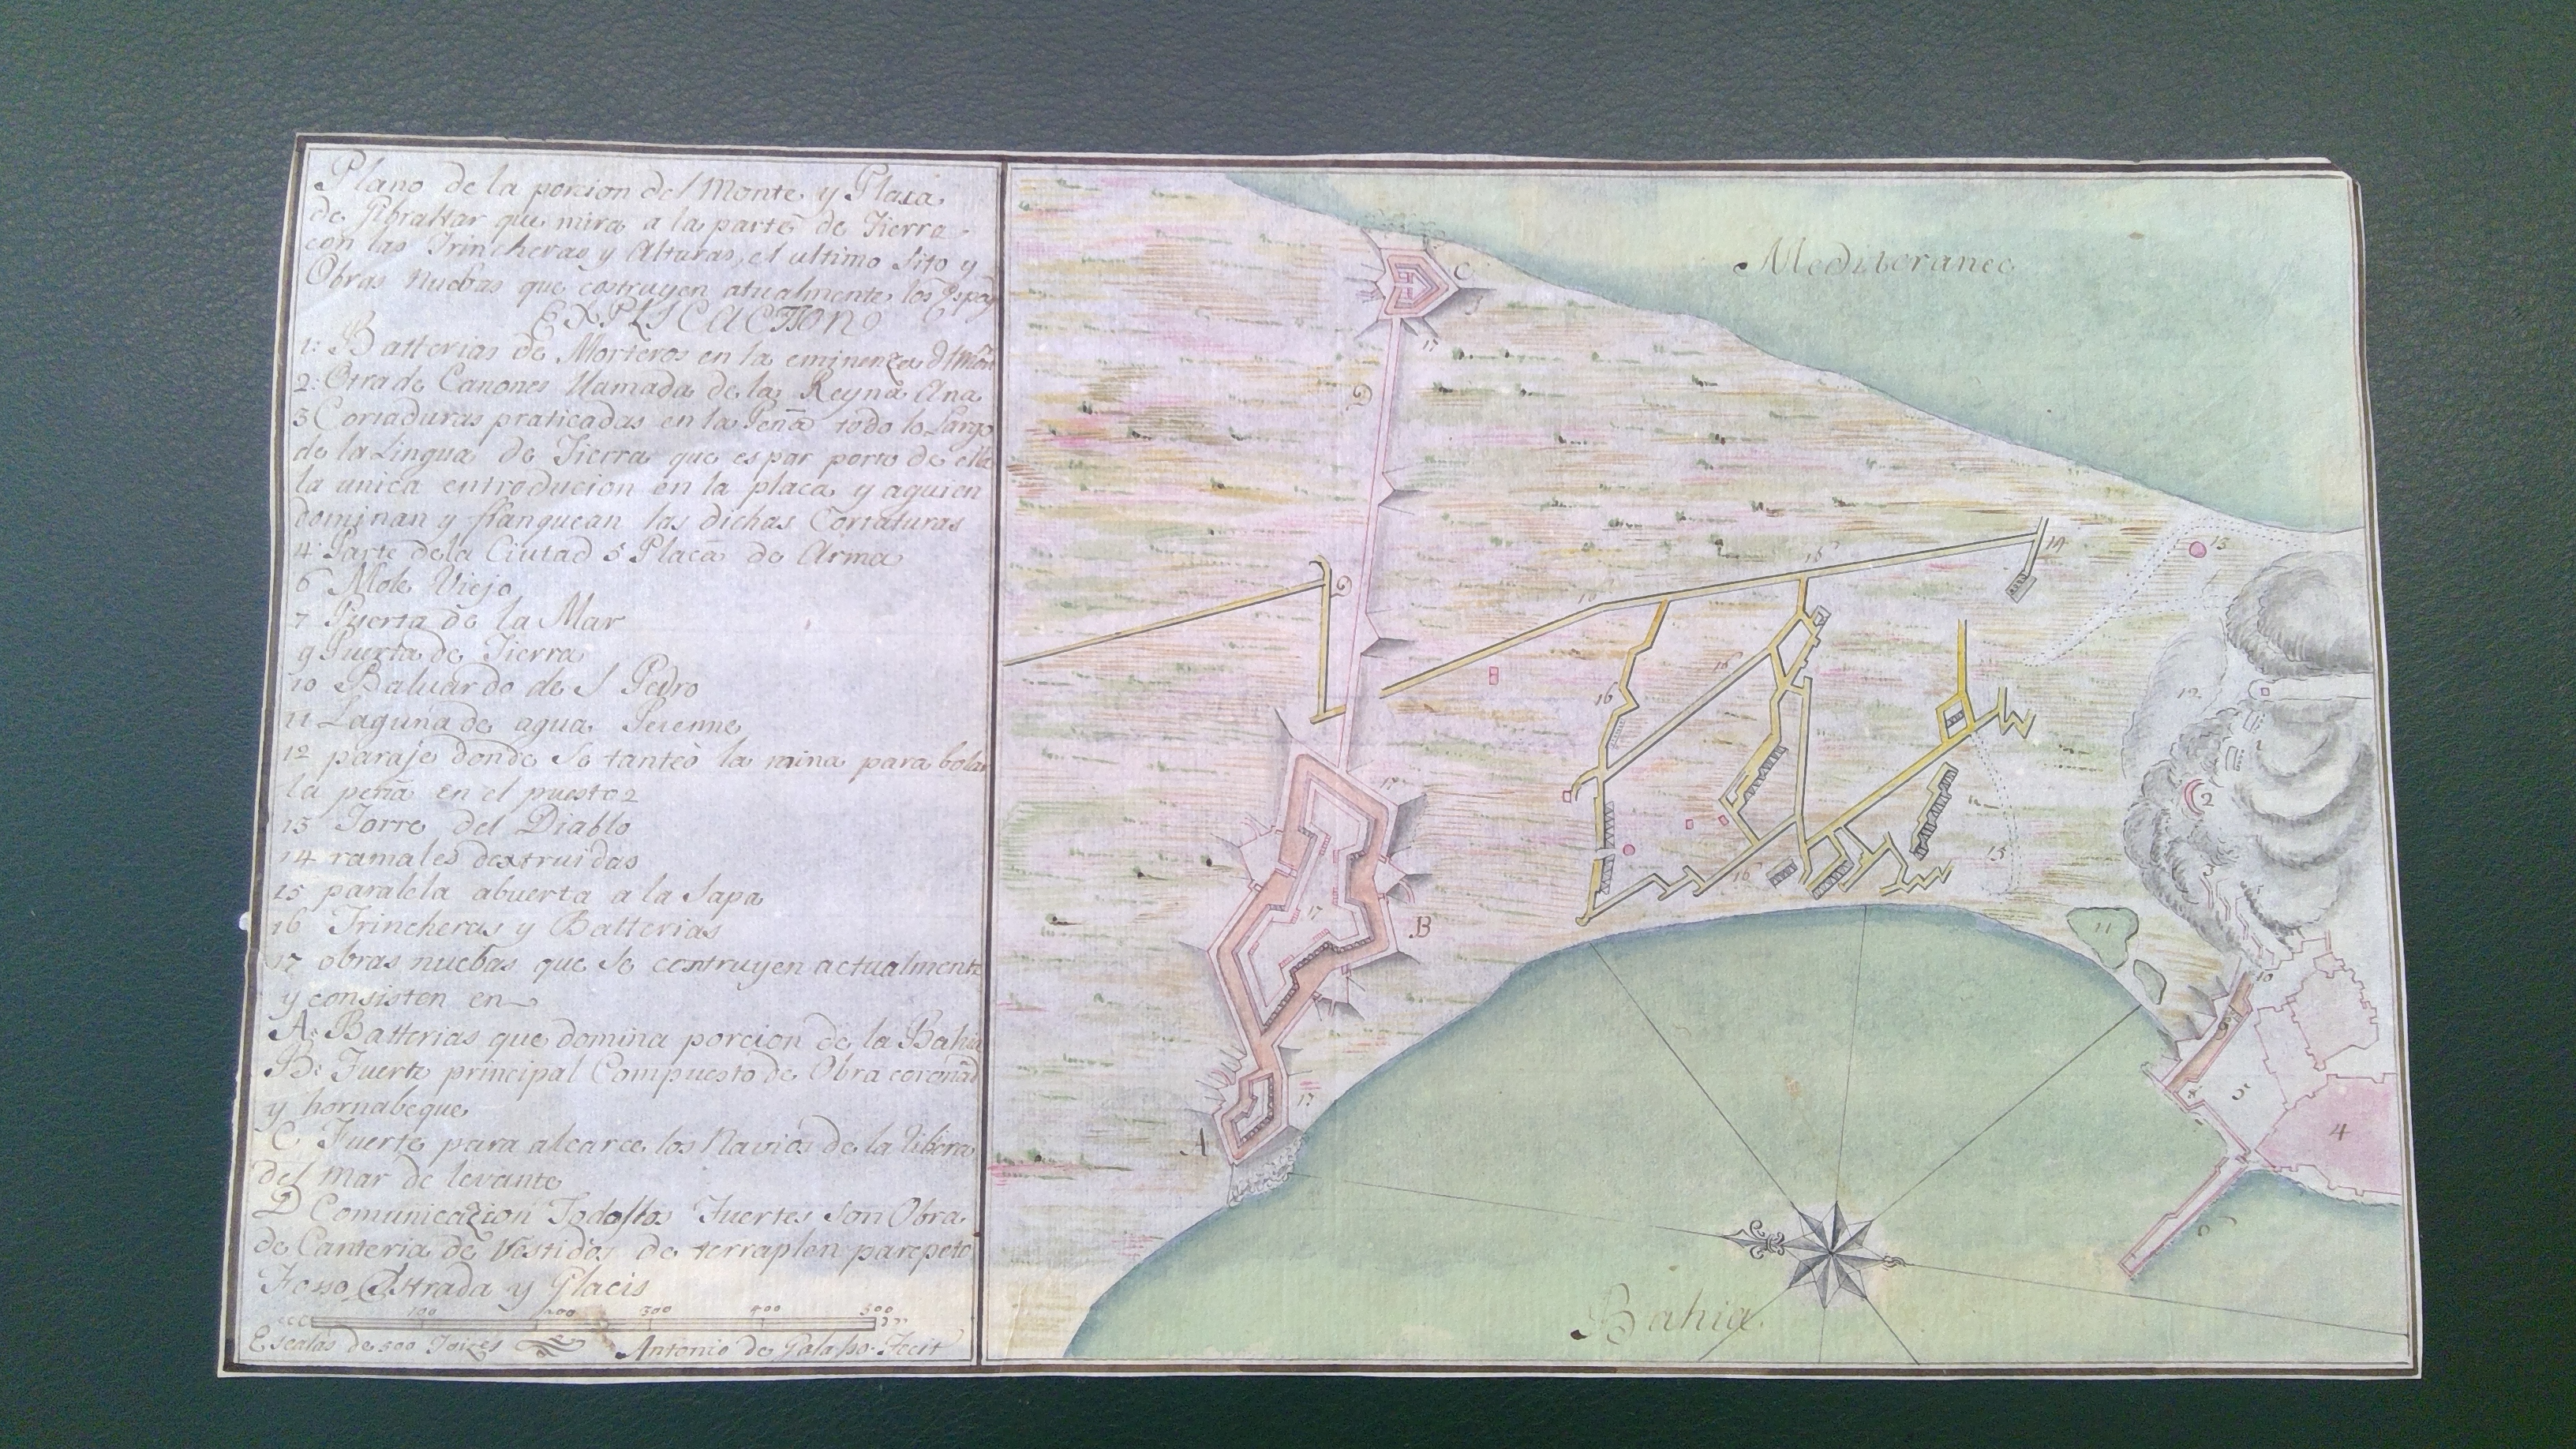 Plano de la porcion del Monte y Plasa
de Gibraltar que mira a la parte de Tierra
con las Trincheras y Alturas, el ultimo Sito y
Obras Nuebas que costruyen atualmente los Espa
EXPLICACTION
1: Batterias de Morteros en la eminenza
2: Otra de Canones Uamada de la Reyna Ana
3 Cortaduras praticadas en la Peña todo lo Largo
de la Lingua de Tierra que es por porte de ella
la unica entroducion en la placa y aquien
dominan y flanquean las dichas Cortaturas
4: Parte de la Ciutad 5 Placa de Arma
6 Mole Viejo
7 Puerta de la Mar
9 Puerta de Tierra
10 Baluardo de S Pedro
11 Laguna de agua Perenne
12 paraje donde Se tanteò la mina para bolar
la peña en el puesto 2
13 Torre del Diablo
14 ramales dextruidas
15 paralela abuerta a la Sapa
16 Trincheras y Batterias
17 obras nuebas que Se contruyen actualmente
y consisten en
A: Batterias que domina porcion de la Bahia
B: Fuerte principal Compuesto de Obra coronad
y hornabeque
C Fuerte para alcarce los Navios de la Ribera
del Mar de levante
D Comunicazion Todo stos Fuertes son Obra
de Canteria de Vestidos de terraplen parepeto
Fosso Estrada y Glacis
100 200 300 400 500
Escalas de 500 Toizes Antonio de Fecit
Mediteraneo
C
17
D
13
14
16
16
16
12
2
17
15
3
17
B
16
11
10
9
17
5
A
4
6
Bahia